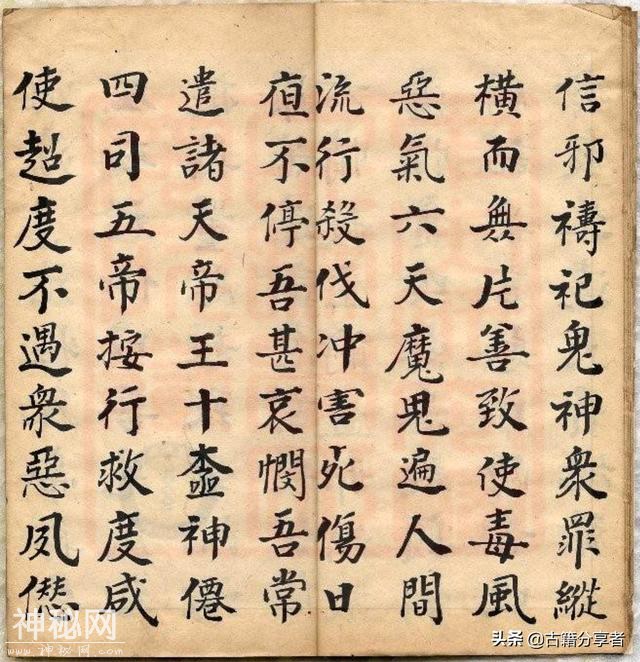 信邪禱祀鬼神衆罪縱
橫而無片善致使毒風
惡氣六天魔鬼遍人間
流行殺伐冲害死傷日
夜不停吾甚哀憫吾常
遣諸天帝王十盉神僊
四司五帝按行救度咸
使超度不遇衆惡夙愆
神秘网
www.神秘网.com
头条 @古籍分享者